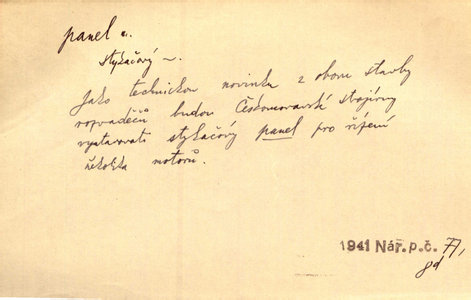 panel m.
stykačový ~.
Jako technickou novinku z oboru stavby
rozvaděčů budou Českomoravské strojírny
vystavovati stykačový panel pro řízení
několika motorů.
1941 Nár. p. č. 77,
8d